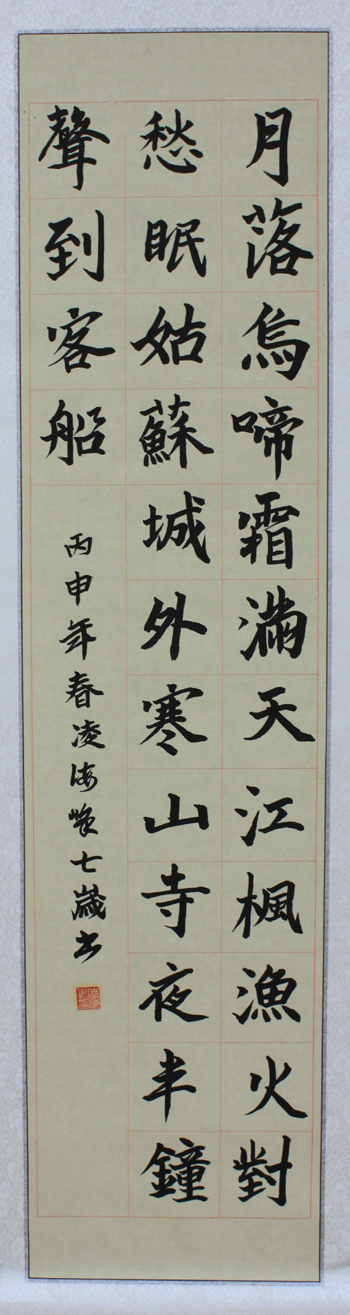 月落烏啼霜滿天江楓漁火對
愁眠姑蘇城外寒山寺夜半鐘
聲到客船
丙申年春凌海七歲书